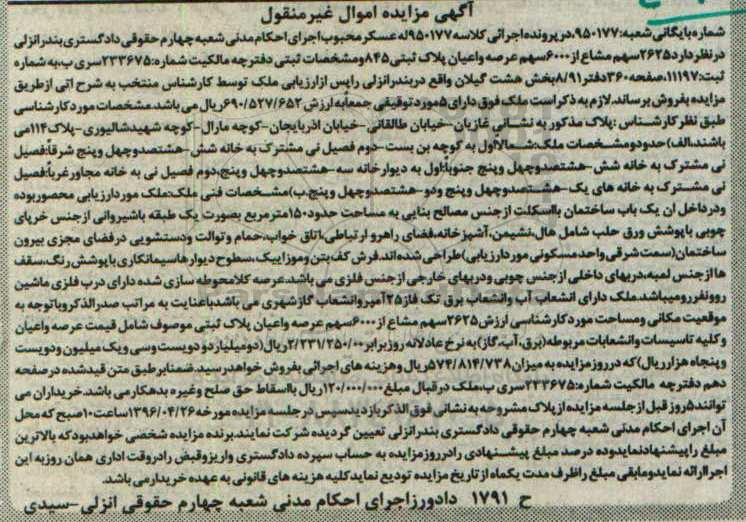 آگهی مزایده اموال غیر منقول
شماره بایگانی شعبه: ۹۵۰۱۷۷، در پرونده اجرائی کلاسه ۹۵۰۱۷۷ له عسکر محبوب اجرای احکام مدنی شعبه چهارم حقوقی دادگستری بندرانزلی
در نظر دارد ۲۶۲۵ سهم مشاع از ۶۰۰۰ سهم عرصه واعیان پلاک ثبتی ۸۴۵ ومشخصات ثبتی دفترچه مالکیت شماره: ۲۳۳۶۷۵ سری ب، به شماره
ثبت: ۱۱۱۹۷، صفحه ۳۶۰ دفتر ۸/۹۱ بخش هشت گیلان واقع در بندرانزلی را پس از ارزیابی ملک توسط کارشناس منتخب به شرح اتی از طریق
مزایده بفروش برساند. لازم به ذکر است ملک فوق دارای ۵ مورد توقیفی جمعاً به ارزش ۶۹۰/۵۲۷/۶۵۲ ریال می باشد. مشخصات مورد کارشناسی
طبق نظر کارشناس: پلاک مذکور به نشانی غازیان-خیابان طالقانی-خیابان اذربایجان-کوچه مارال-کوچه شهید شالیوری-پلاک ۱۱۴ می
باشند. الف) حدود و مشخصات ملک: شمالا اول به کوچه بن بست-دوم فصیل نی مشترک به خانه شش-هشتصدوچهل وپنج شرقا: فصیل
نی مشترک به خانه شش-هشتصدوچهل وپنج جنوبا: اول به دیوار خانه سه-هشتصدوچهل وپنج، دوم فصیل نی به خانه مجاور غربا: فصیل
نی مشترک به خانه های یک-هشتصدوچهل وپنج ودو-هشتصدوچهل وپنج. ب) مشخصات فنی ملک: ملک مورد ارزیابی محصور بوده
ودر داخل ان یک باب ساختمان با اسکلت از جنس مصالح بنایی به مساحت حدود ۱۵۰ مترمربع بصورت یک طبقه باشیروانی از جنس خرپای
چوبی با پوشش ورق حلب شامل هال، نشیمن، آشپزخانه، فضای راهرو ارتباطی، اتاق خواب، حمام و توالت ودستشویی در فضای مجزی بیرون
ساختمان (سمت شرقی واحد مسکونی مورد ارزیابی) طراحی شده اند. فرش کف بتن وموزاییک، سطوح دیوارها سیمانکاری با پوشش رنگ، سقف
ها از جنس لمبه، دربهای داخلی از جنس چوبی ودربهای خارجی از جنس فلزی می باشد. عرصه کلا محوطه سازی شده دارای درب فلزی ماشین
رو و نفررو میباشد. ملک دارای انشعاب آب وانشعاب برق تک فاز ۲۵ آمپر وانشعاب گاز شهری می باشد با عنایت به مراتب صدرالذکر و باتوجه به
موقعیت مکانی ومساحت مورد کارشناسی ارزش ۲۶۲۵ سهم مشاع از ۶۰۰۰ سهم عرصه واعیان پلاک ثبتی موصوف شامل قیمت عرصه واعیان
و کلیه تاسیسات وانشعابات مربوطه (برق، آب، گاز) به نرخ عادلانه روز برابر ۲/۲۳۱/۲۵۰/۰۰ ریال (دو میلیارد و دویست وسی و یک میلیون و دویست
و پنجاه هزار ریال) که در روز مزایده به میزان ۵۷۴/۸۱۴/۷۳۸ ریال وهزینه های اجرائی بفروش خواهد رسید. ضمنا بر طبق متن قید شده در صفحه
دهم دفترچه مالکیت شماره: ۲۳۳۶۷۵ سری ب، ملک در قبال مبلغ ۱۲۰/۰۰۰/۰۰۰ ریال با اسقاط حق صلح وغیره بدهکار می باشد. خریداران می
توانند ۵ روز قبل از جلسه مزایده از پلاک مشروحه به نشانی فوق الذکر بازدید سپس در جلسه مزایده مورخه ۱۳۹۶/۰۴/۲۶ ساعت ۱۰ صبح که محل
آن اجرای احکام مدنی شعبه چهارم حقوقی دادگستری بندرانزلی تعیین گردیده شرکت نمایند. برنده مزایده شخصی خواهد بود که بالاترین
مبلغ را پیشنهاد نماید و ده درصد مبلغ پیشنهادی را در روز مزایده به حساب سپرده دادگستری واریز و قبض را در وقت اداری همان روز به این
اجرا ارائه نماید و مابقی مبلغ را ظرف مدت یکماه از تاریخ مزایده تودیع نماید کلیه هزینه های قانونی به عهده خریدار می باشد.
ح ۱۷۹۱ دادورز اجرای احکام مدنی شعبه چهارم حقوقی انزلی-سیدی